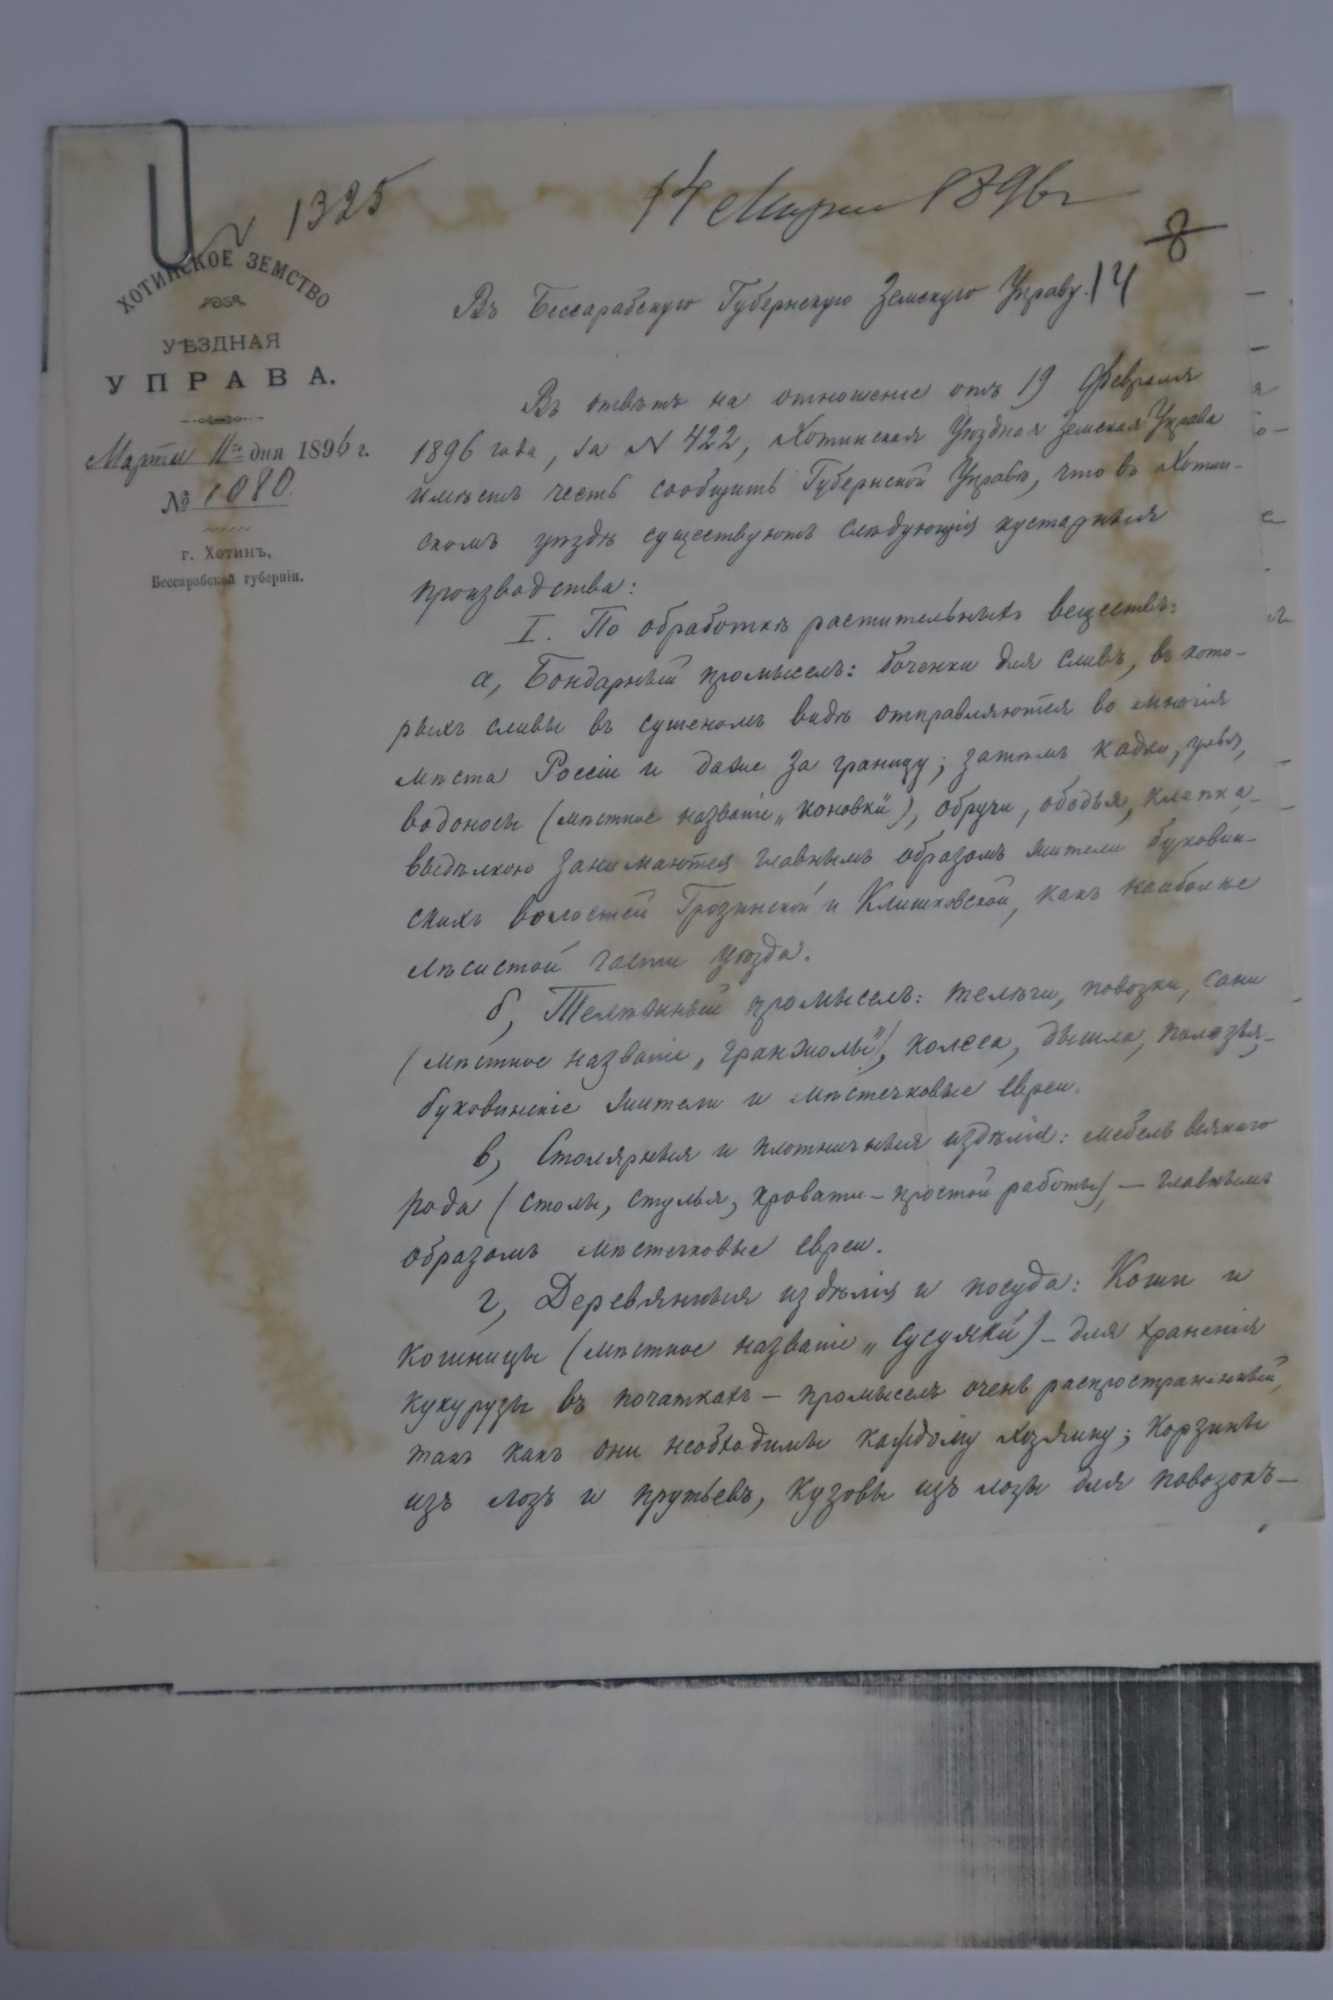 № 1325
14 Марта 1896 г
8
ХОТИНСКОЕ ЗЕМСТВО
УѢЗДНАЯ
УПРАВА.
Марта 11го дня 1896 г.
№ 1080.
г. Хотинъ,
Бессарабской губерніи.
Въ Бессарабскую Губернскую Земскую Управу. 14
Въ отвѣтъ на отношеніе отъ 19 Февраля
1896 года, за № 422, Хотинская Уѣздная Земская Управа
имѣетъ честь сообщить Губернской Управѣ, что въ Хотин-
скомъ уѣздѣ существуютъ слѣдующія кустарныя
производства:
I. По обработкѣ растительныхъ веществъ:
а, Бондарный промыселъ: боченки для сливъ, въ кото-
рыхъ сливы въ сушеномъ видѣ отправляются во многія
мѣста Россіи и даже за границу; затѣмъ кадки,
водоносы (мѣстное названіе „коновки"), обручи, ободья, клепка,-
выдѣлкою занимаются главнымъ образомъ жители буковин-
скихъ волостей Грозинской и Клишковской, какъ наиболѣе
лѣсистой части уѣзда.
б, Телѣжный промыселъ: телѣги, повозки, сани
(мѣстное названіе „гранжолы"), колеса, дышла, полозья,-
буковинскіе жители и мѣстечковые евреи.
в, Столярныя и плотничныя издѣлія: мебель всякаго
рода (столы, стулья, кровати - простой работы), — главнымъ
образомъ мѣстечковые евреи.
г, Деревянныя издѣлія и посуда: Коши и
кошницы (мѣстное названіе „сусуяки") - для храненія
кукурузы въ початкахъ — промыселъ очень распространенный,
такъ какъ они необходимы каждому хозяину; корзины
изъ лозъ и прутьевъ, кузовы изъ лозы для повозокъ—